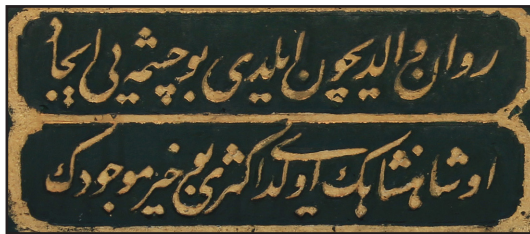 روان والديچون ايلدى بو چشمه يى ايجاد
او شاهنشاهك اولدى اكثرى بو خير موجودك